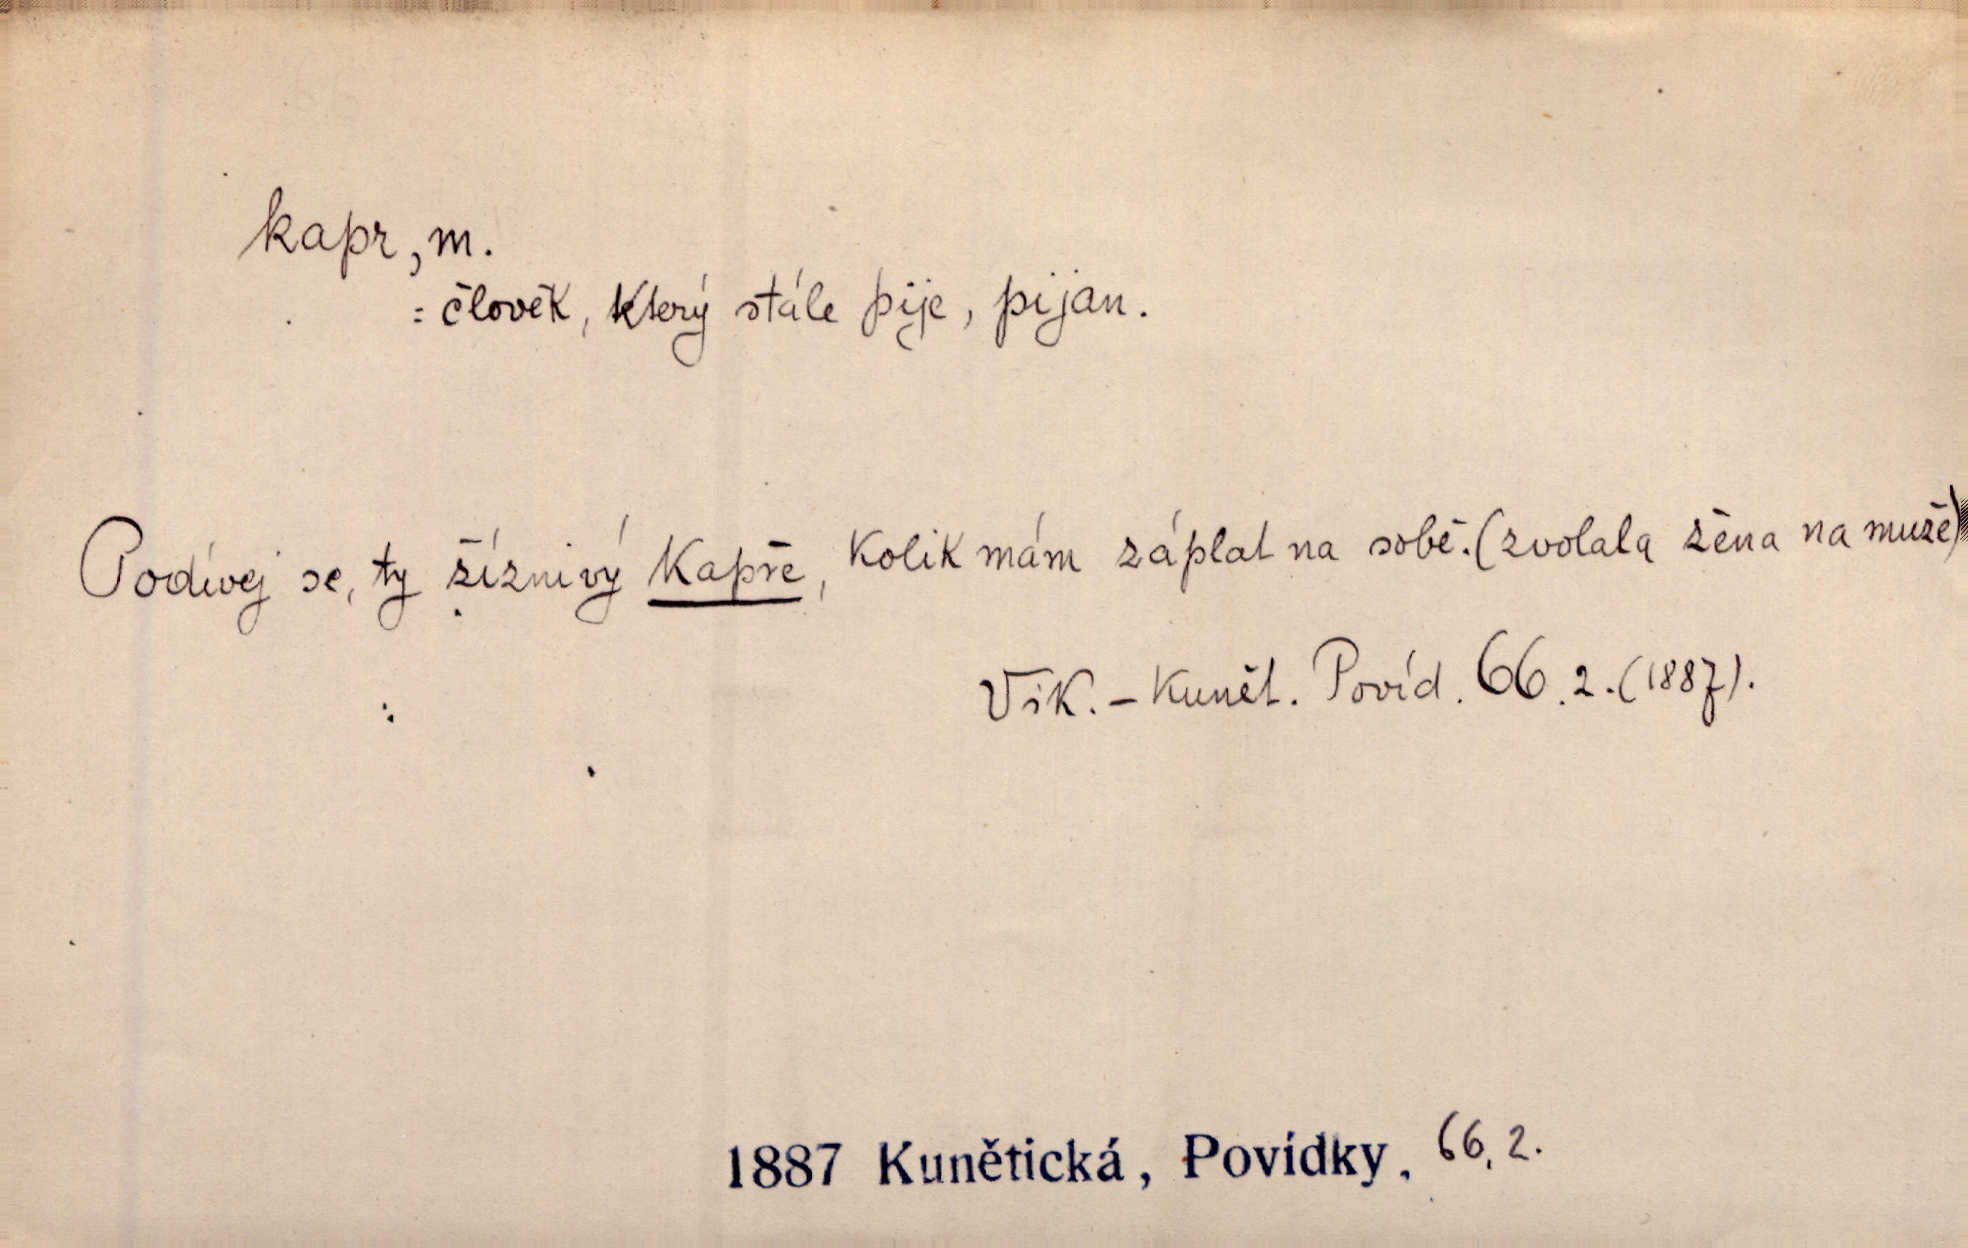 kapr, m.
= člověk, který stále pije, pijan.
Podívej se, ty žíznivý kapře, kolik mám záplat na sobě. (zvolala žena na muže)
Vik. - Kunět. Povíd. 66. 2. (1887).
1887 Kunětická, Povídky, 66, 2.